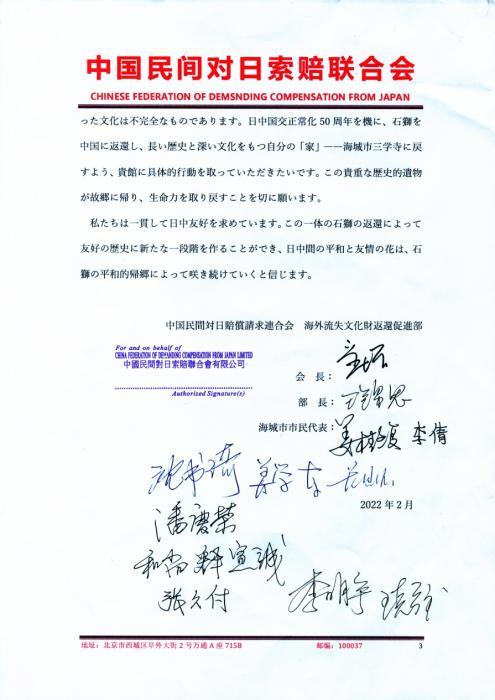 中国民间对日索赔联合会
CHINESE FEDERATION OF DEMSNDING COMPENSATION FROM JAPAN
った文化は不完全なものであります。日中国交正常化 50 周年を機に、石獅を
中国に返還し、長い歴史と深い文化をもつ自分の「家」——海城市三学寺に戻
すよう、貴館に具体的行動を取っていただきたいです。この貴重な歴史的遺物
が故郷に帰り、生命力を取り戻すことを切に願います。
私たちは一貫して日中友好を求めています。この一体の石獅の返還によって
友好の歴史に新たな一段階を作ることができ、日中間の平和と友情の花は、石
獅の平和的帰郷によって咲き続けていくと信じます。
中国民間対日賠償請求連合会 海外流失文化財返還促進部
For and on behalf of
CHINA FEDERATION OF DEMANDING COMPENSATION FROM JAPAN LIMITED
中國民間對日索賠聯合會有限公司
Authorized Signature(s)
会 長：
部 長：
海城市市民代表： 李倩
2022 年 2 月
潘慶榮
和尚 釋宣誠
张久付
地址：北京市西城区阜外大街 2 号万通 A 座 715B 邮编：100037 3